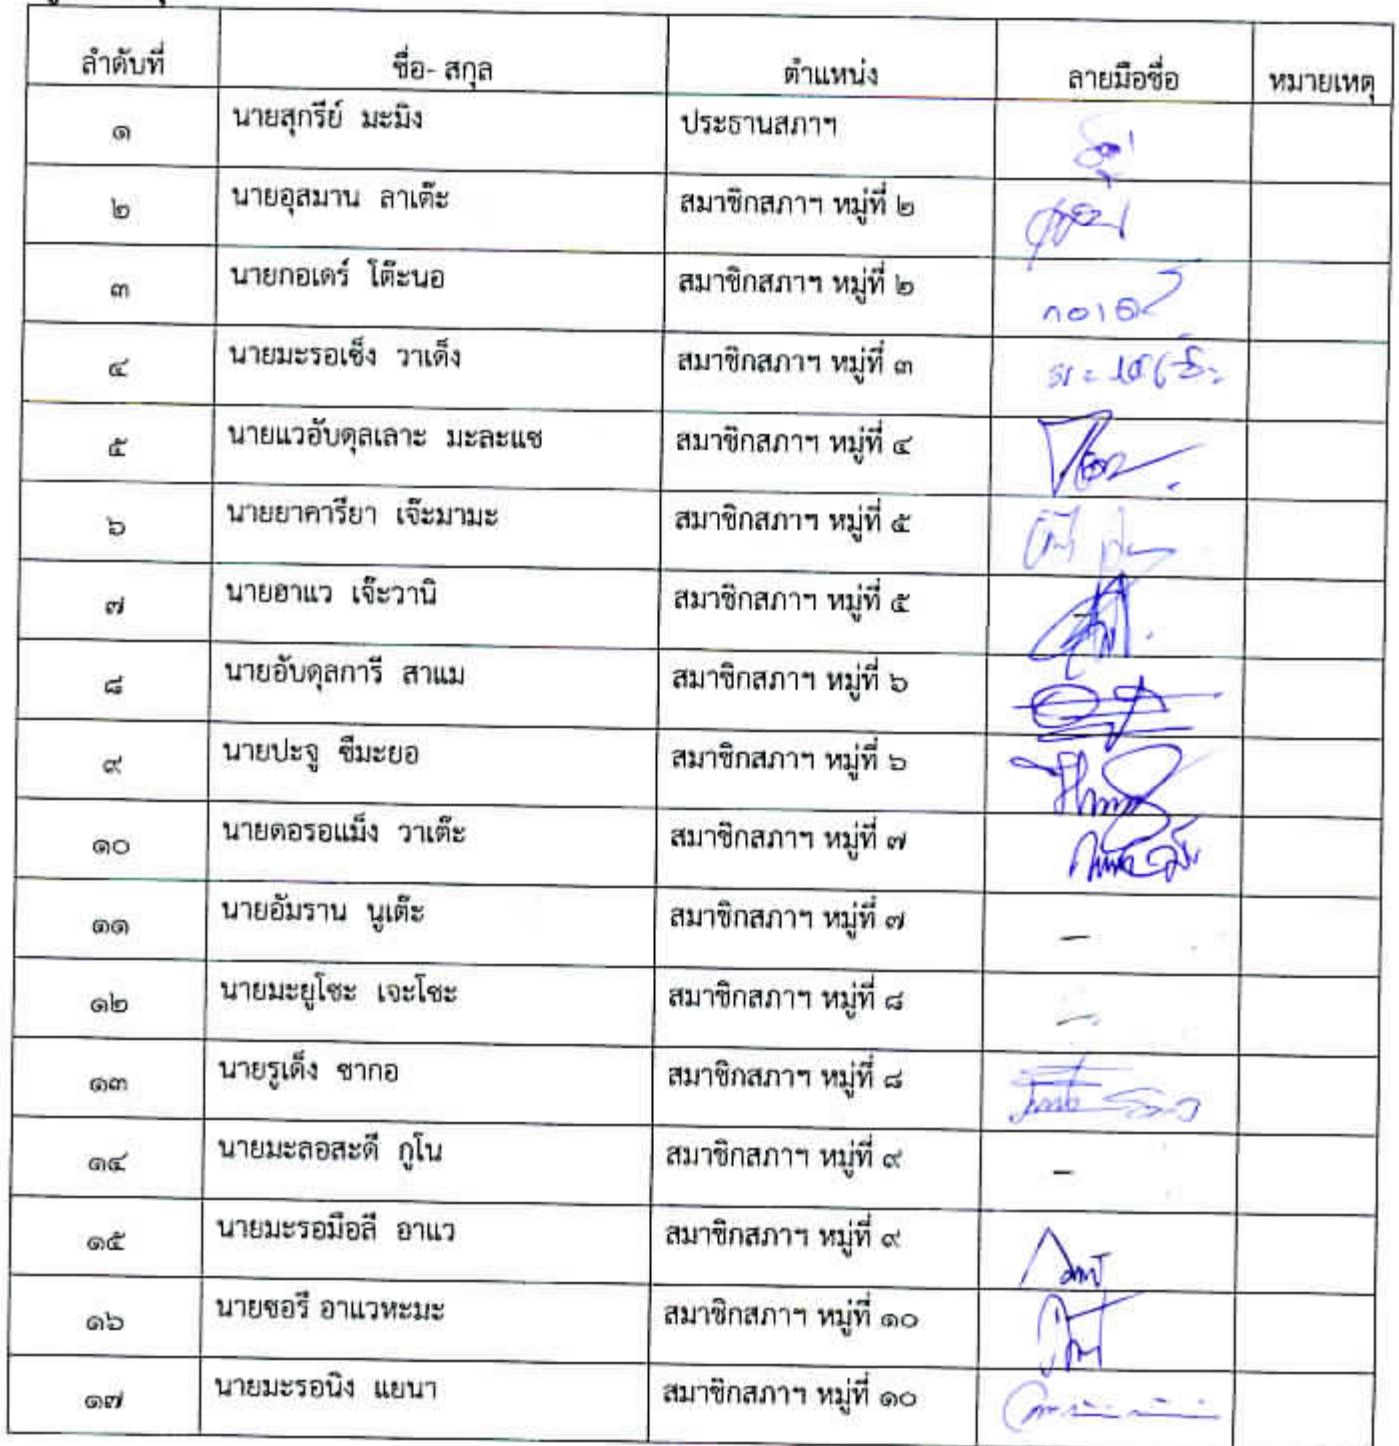 ลำดับที่ ชื่อ- สกุล ตำแหน่ง ลายมือชื่อ หมายเหตุ
๑ นายสุกรีย์ มะมิง ประธานสภาฯ
๒ นายอุสมาน ลาเต๊ะ สมาชิกสภาฯ หมู่ที่ ๒
๓ นายกอเดร์ โต๊ะนอ สมาชิกสภาฯ หมู่ที่ ๒ กอเดร์
๔ นายมะรอเซ็ง วาเด็ง สมาชิกสภาฯ หมู่ที่ ๓
๕ นายแวอับดุลเลาะ มะละแซ สมาชิกสภาฯ หมู่ที่ ๔
๖ นายยาคารียา เจ๊ะมามะ สมาชิกสภาฯ หมู่ที่ ๕
๗ นายฮาแว เจ๊ะวานิ สมาชิกสภาฯ หมู่ที่ ๕
๘ นายอับดุลการี สาแม สมาชิกสภาฯ หมู่ที่ ๖
๙ นายปะจู ซีมะยอ สมาชิกสภาฯ หมู่ที่ ๖
๑๐ นายดอรอแม็ง วาเต๊ะ สมาชิกสภาฯ หมู่ที่ ๗
๑๑ นายอัมราน นูเต๊ะ สมาชิกสภาฯ หมู่ที่ ๗ -
๑๒ นายมะยูโซะ เจะโซะ สมาชิกสภาฯ หมู่ที่ ๘ -
๑๓ นายรูเด็ง ซากอ สมาชิกสภาฯ หมู่ที่ ๘
๑๔ นายมะลอสะดี กูโน สมาชิกสภาฯ หมู่ที่ ๙ -
๑๕ นายมะรอมือลี อาแว สมาชิกสภาฯ หมู่ที่ ๙
๑๖ นายซอรี อาแวหะมะ สมาชิกสภาฯ หมู่ที่ ๑๐
๑๗ นายมะรอนิง แยนา สมาชิกสภาฯ หมู่ที่ ๑๐